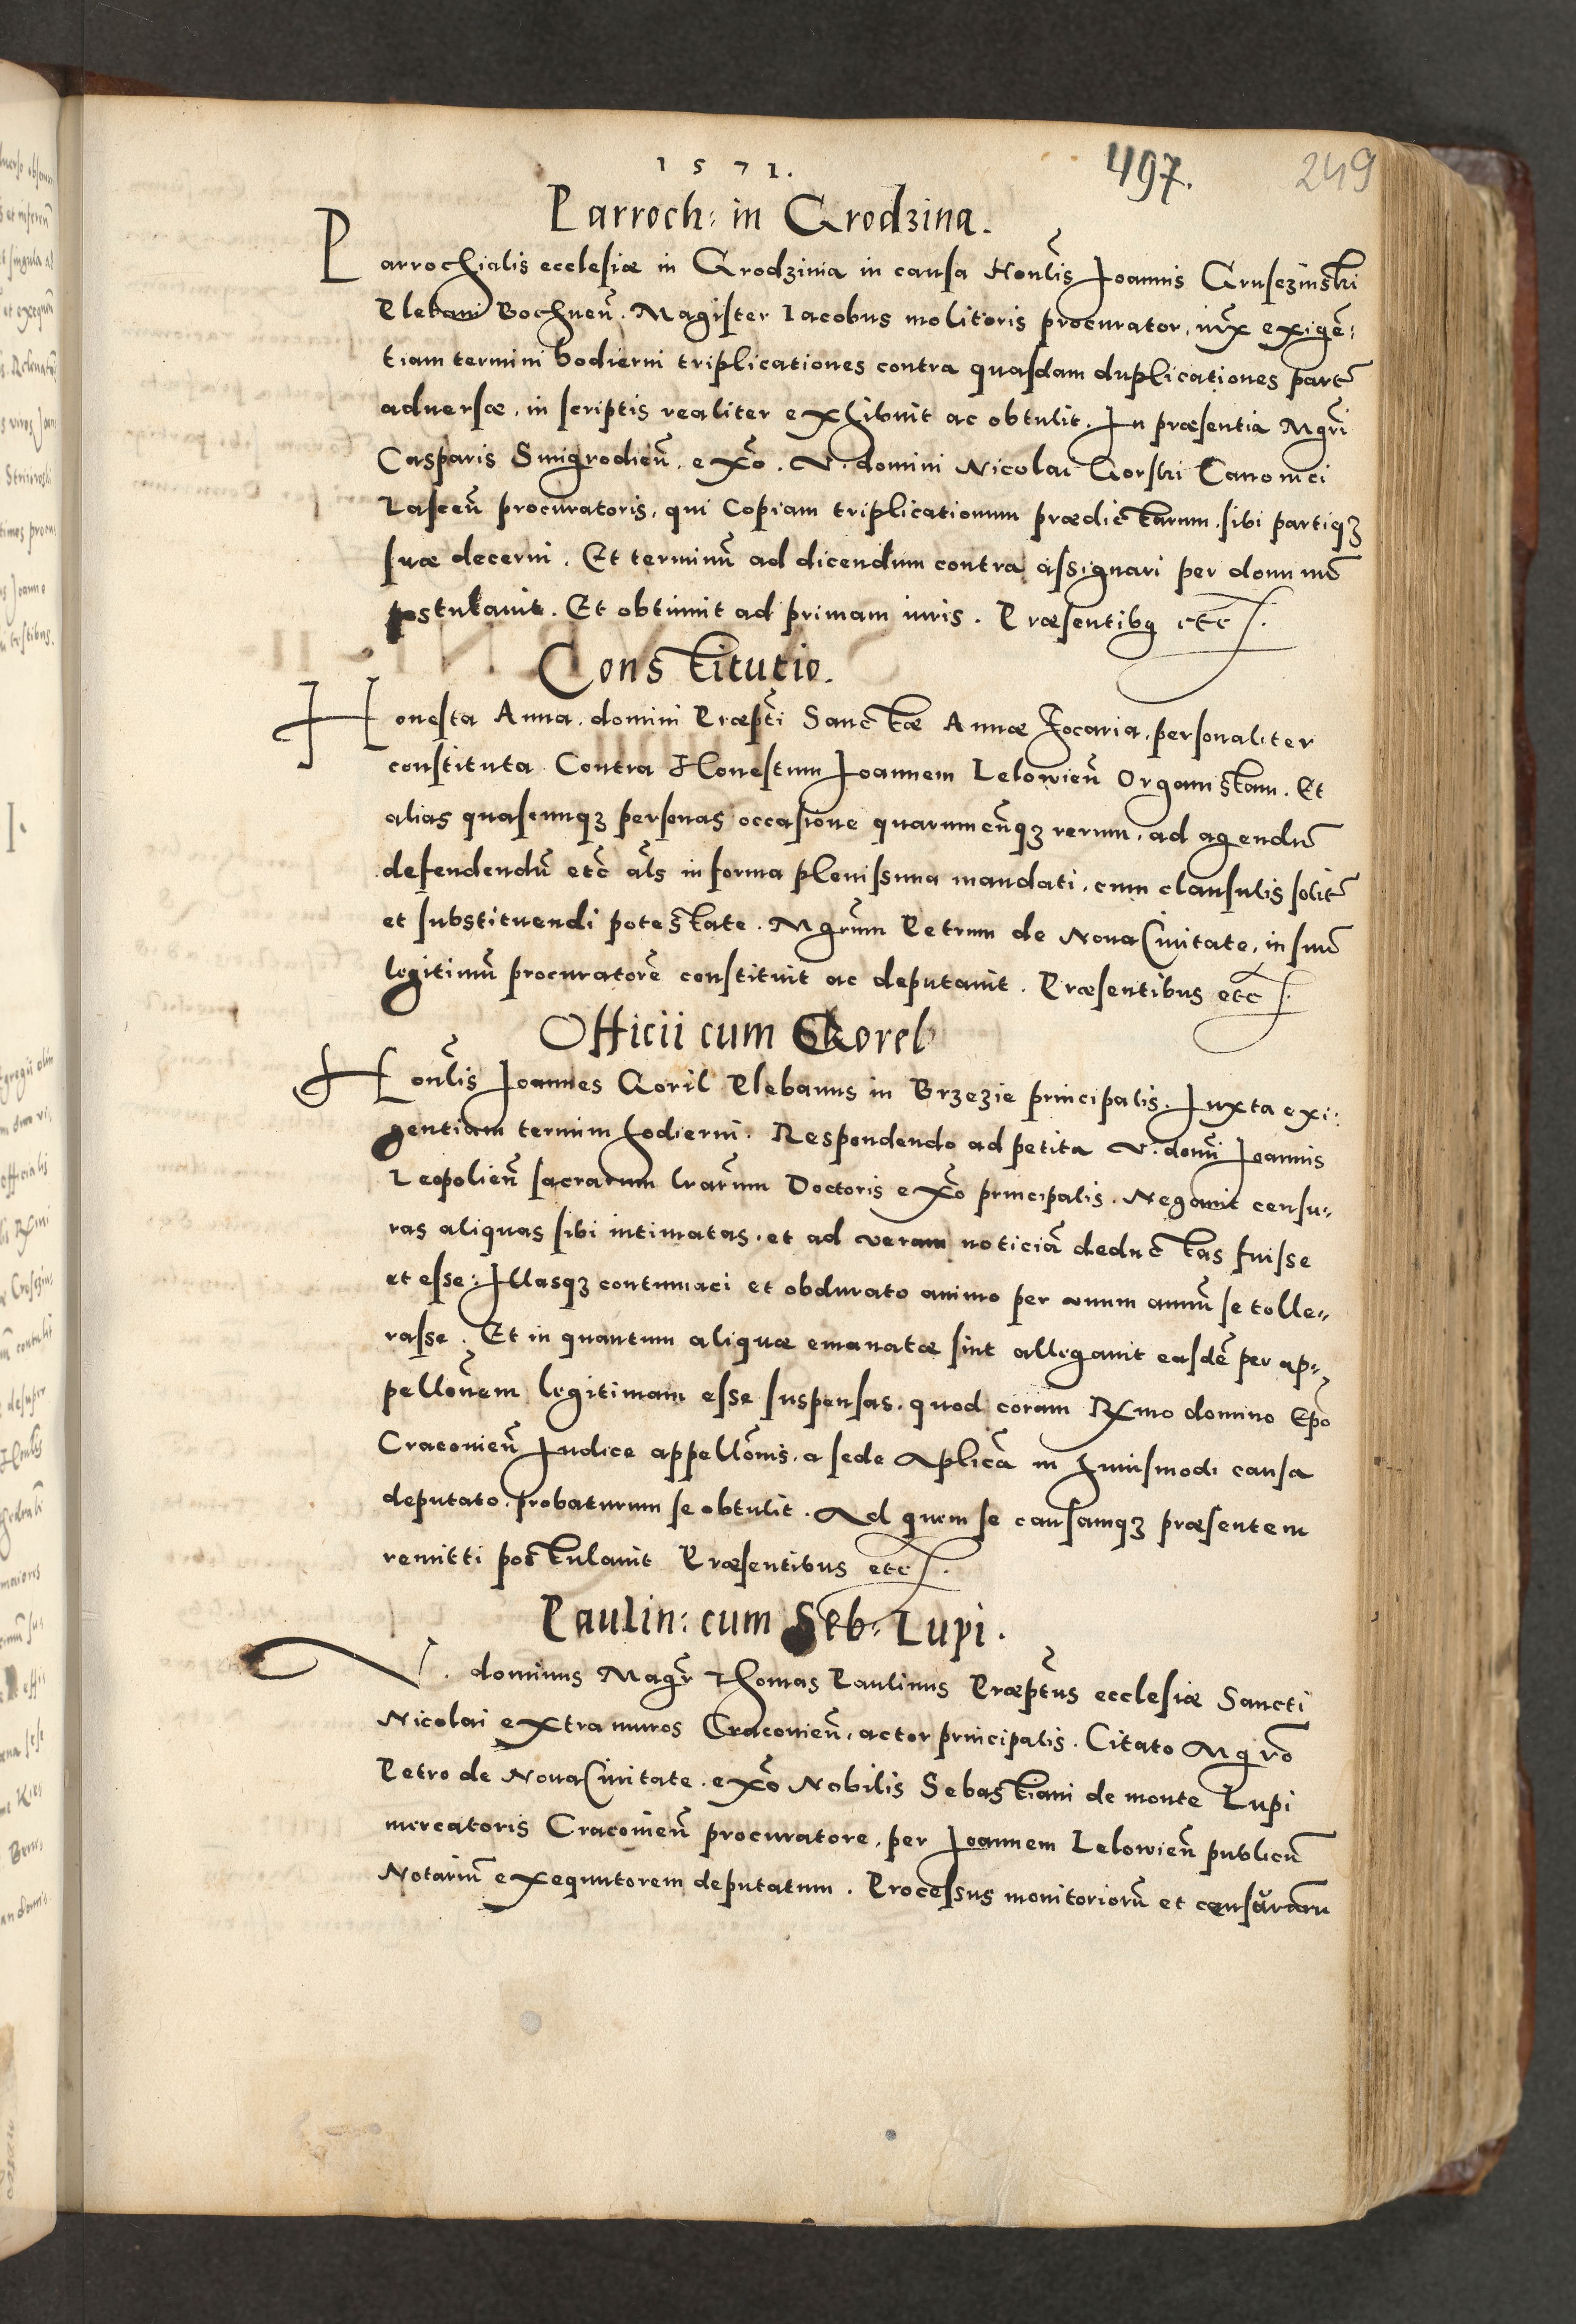 1571.
497.
249
Parroch: in Grodzina.
Parrochialis ecclesiæ in Grodzinia in causa Honlis Joannis Grusczinski
Plebani Bochnen̄. Magister Iacobus molitoris procurator, iux̄ exigē:
tiam termini hodierni triplicationes contra quasdam duplicationes part̄
aduersæ, in scriptis realiter exhibuit ac obtulit. In præsentia Mgr̄i
Casparis Smigrodien̄, ex̄o. V. domini Nicolai Gorski Canonici
Lascen̄ procuratoris, qui Copiam triplicationum prædictarum, sibi partiqꝫ
suæ decerni. Et terminū ad dicendum contra assignari per dominū
postulauit. Et obtinuit ad primam iuris. Præsentibꝰ etc.
Constitutio.
Honesta Anna, domini Præpt̄i Sanctæ Annæ Focaria, personaliter
constituta Contra Honestum Joannem Lelowien̄ Organistam. Et
alias quascunqꝫ personas occasione quarumcūqꝫ rerum, ad agendū
defendendū etc̄ al̄s in forma plenissima mandati, cum clausulis solit̄
et substituendi potestate. Mgr̄um Petrum de Noua Ciuitate, in suū
legitimū procuratorē constituit ac deputauit. Præsentibus etc.
Officii cum Gorel
Honl̄is Joannes Goril Plebanus in Brzezie principalis. Juxta exi:
gentiam termini hodierni. Respondendo ad petita V. domi̅ Joannis
Leopolien̄ sacrarum lrārum Doctoris ex̄o principalis. Negauit censu:
ras aliquas sibi intimatas, et ad veram noticiā deductas fuisse
et esse: Illasqꝫ contumaci et obdurato animo per vnum annū se tolle:
rasse. Et in quantum aliquæ emanatæ sint allegauit easdē per ap:
pellōnem legitimam esse suspensas, quod coram Rx̄mo domino Ep̄o
Cracouien̄ Judice appellōnis, a sede Aplicā in huiusmodi causa
deputato, probaturum se obtulit. Ad quem se causamqꝫ præsentem
remitti postulauit Præsentibus etc.
Paulin: cum Seb: Lupi.
V. dominus Magr̄ Thomas Paulinus Præpt̄us ecclesiæ Sancti
Nicolai extra muros Cracouien̄, actor principalis. Citato Mgr̄o
Petro de Noua Ciuitate, ex̄o Nobilis Sebastiani de monte Lupi
mercatoris Cracouien̄ procuratore, per Joannem Lelowien̄ publicū
Notariū exequutorem deputatum. Processus monitoriorū et censurarū